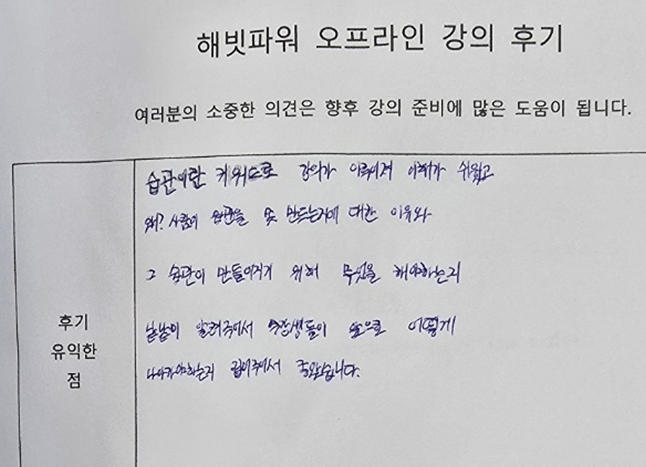 해빗파워 오프라인 강의 후기
여러분의 소중한 의견은 향후 강의 준비에 많은 도움이 됩니다.
습관이란 키워드로 강의가 이루어져 이해가 쉬웠고
왜? 사람이 습관을 못 만드는가에 대한 이유와
그 습관이 만들어지기 위해 무엇을 해야하는지
낱낱이 알려주어서 수강생들이 앞으로 어떻게
나아가야하는지 짚어주어서 좋았습니다.
후기
유익한
점